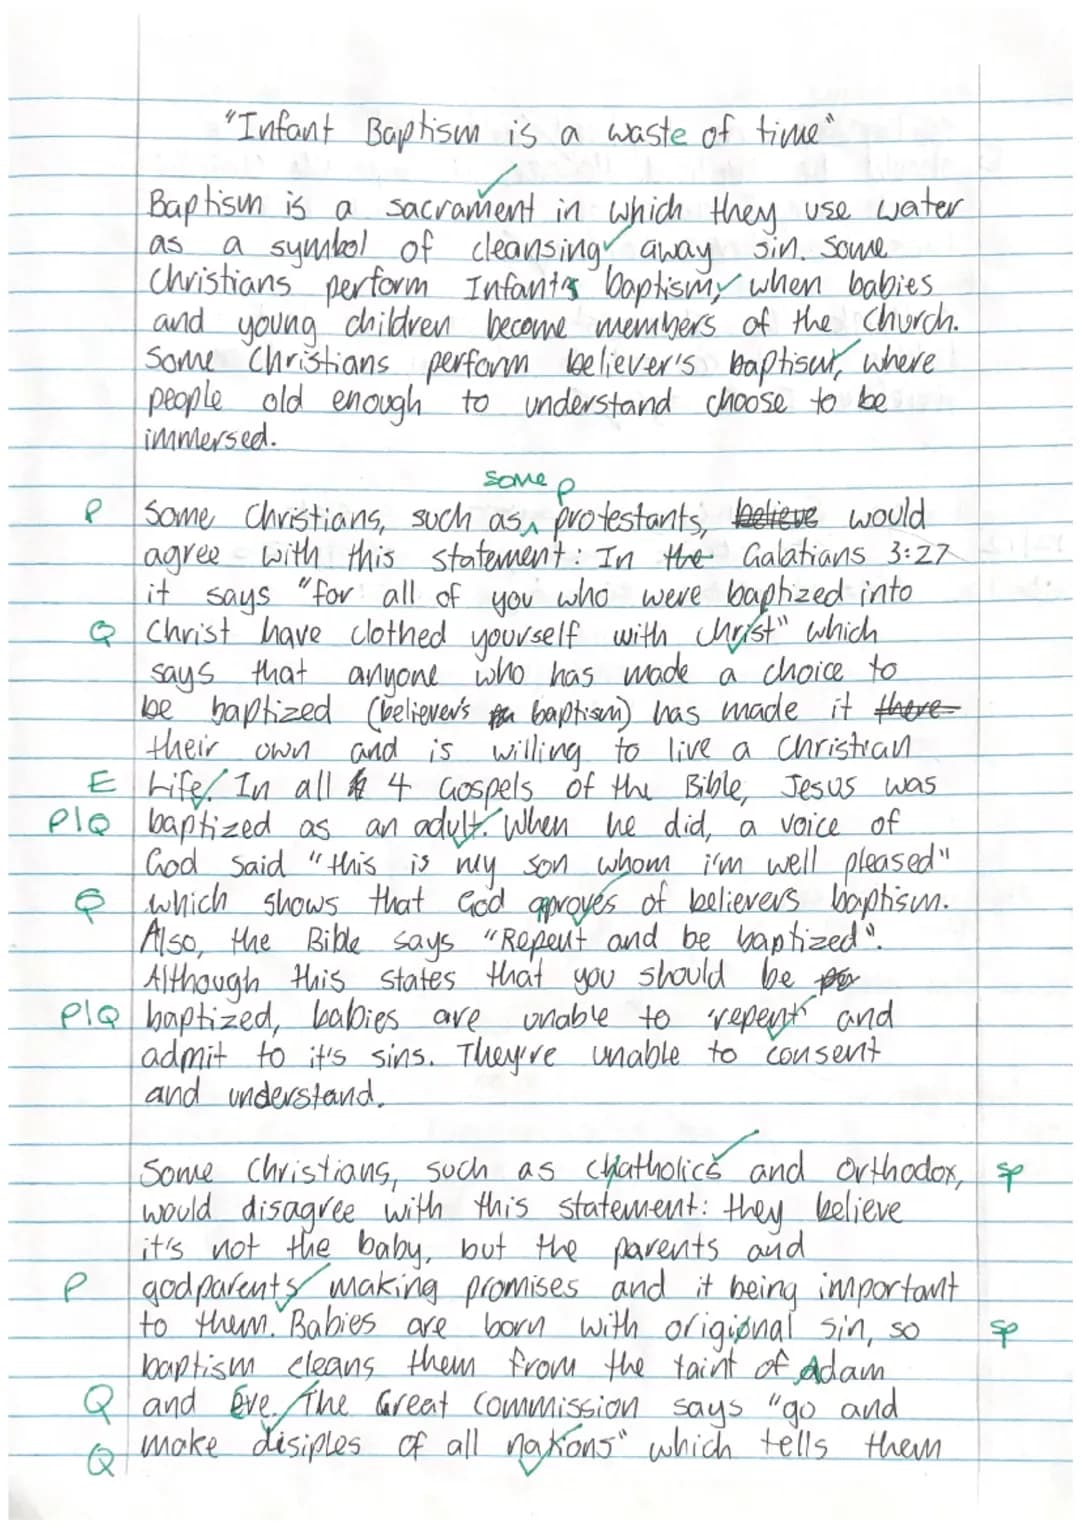 "Infant Baptism is a waste of time"
Baptism is a sacrament in which they use water
as a symbol of cleansing away sin. Some
Christians perform Infant baptism, when babies
and young children become members of the Church.
Some Christians perform believer's baptism, where
people old enough to understand choose to be
immersed.
some p
P Some Christians, such as protestants, believe would
agree with this statement: In the Galatians 3:27
it says "for all of you who were baptized into
Q Christ have clothed yourself with Christ" which
says that anyone who has made a choice to
be baptized (believer's baptism) has made it there
their own and is willing to live a Christian
E Life. In all 4 Gospels of the Bible, Jesus was
P|Q baptized as an adult. When he did, a voice of
God said "this is my son whom i'm well pleased"
Q which shows that God aproves of believers baptism.
Also, the Bible says "Repent and be baptized".
Although this states that you should be
P|Q baptized, babies are unable to 'repent' and
admit to it's sins. They're unable to consent
and understand.
Some Christians, such as Chatholics and Orthodox, sp
would disagree with this statement: they believe
it's not the baby, but the parents and
P godparents making promises and it being important
to them. Babies are born with origional sin, so sp
baptism cleans them from the taint of Adam
Q and Eve. The Great Commission says "go and
Q make disiples of all nations" which tells them